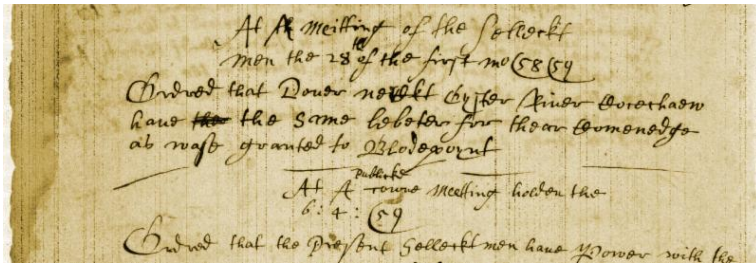 At A meitting of the Selleckt
men the 28th of the first mo (58 (59
Ordred that Dover neckt Oyster River Cocechaew
have the the Same lebeter for thear Comenedge
as wase granted to Blodepoynt
At A Publicke towne Meetting holden the
6: 4: (59
Ordred that the Present Selleckt men have Power with the